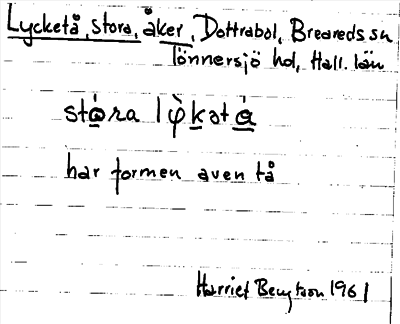 Lycketå, stora, åker, Dottrabol, Breareds sn
Tönnersjö hd, Hall. län
stɑ̀ra lỳkatɑ̀
har formen av en tå
Harriet Bengtson 1961